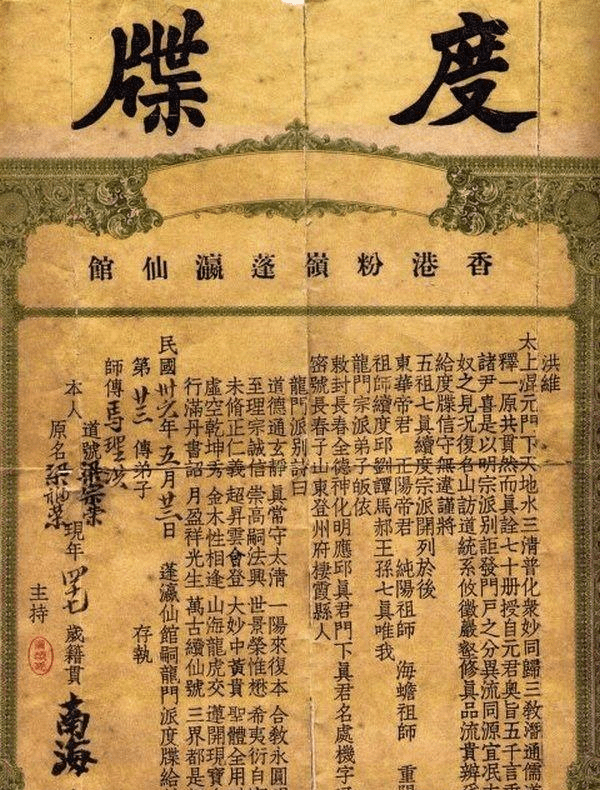 度牒
香港粉嶺蓬瀛仙館
洪維
太上混元門下天地水三清普化衆妙同歸三敎潛通儒道
釋一原共貫然而眞詮七十册授自元君奧旨五千言
諸尹喜是以明宗派別詎發門戶之分異流同源宜泯
奴之見況復名山訪道統系攸徵嚴壑修眞品流貴辨
給度牒信守無違謹將
五祖七眞續度宗派開列於後
東華帝君 正陽帝君 純陽祖師 海蟾祖師 重陽
祖師續度邱劉譚馬郝王孫七眞唯我
龍門宗派弟子皈依
敕封長春全德神化明應邱眞君門下眞君名處機字
密號長春子山東登州府棲霞縣人
龍門派別詩曰
道德通玄靜 眞常守太淸 一陽來復本 合敎永圓
至理宗誠信 崇高嗣法興 世景榮惟懋 希夷衍自
未脩正仁義 超昇雲會登 大妙中黃貴 聖體全用
虛空乾坤秀 金木性相逢 山海龍虎交 蓮開現寶
行滿丹書詔 月盈祥光生 萬古續仙號 三界都是
民國卅六年五月廿二日 蓬瀛仙館嗣龍門派度牒給
第廿三傳弟子 存執
師傳馬聖
道號
本人 現年四七歲籍貫南海
原名梁
主持